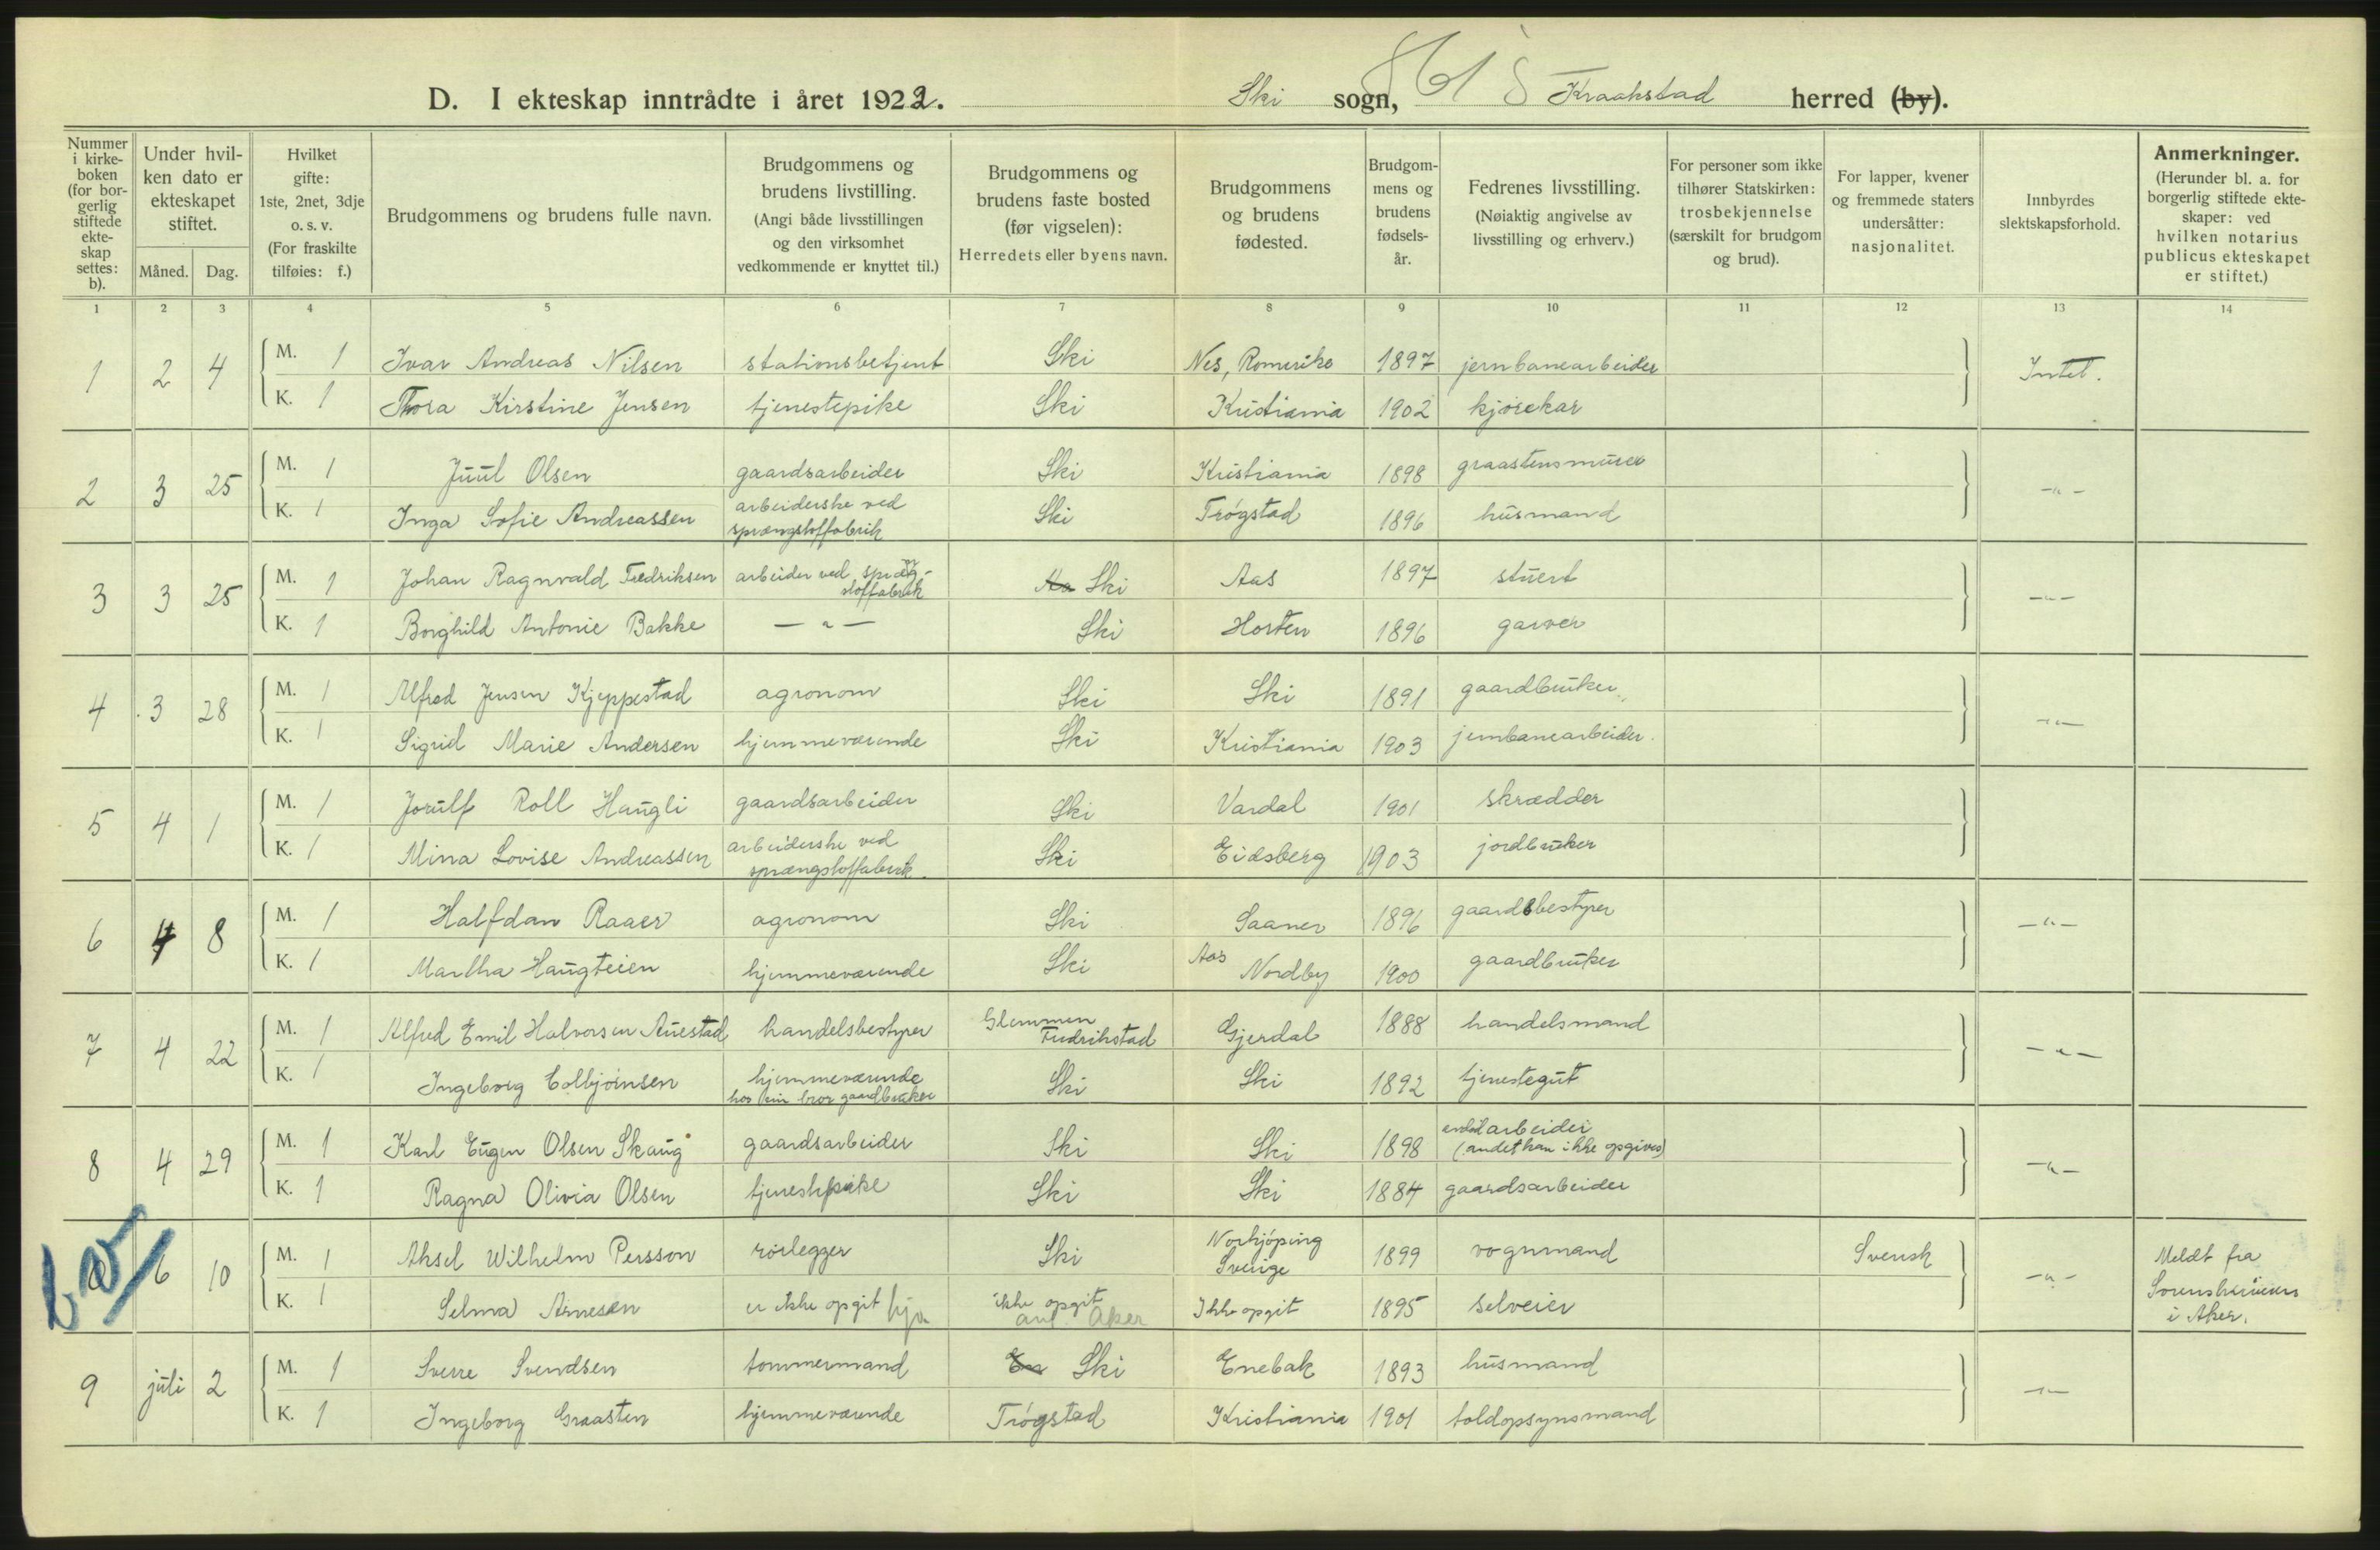 D. I ekteskap inntrådte i året 1922. Ski sogn, Kraakstad herred (by).
Nummer i kirkeboken (for borgerlig stiftede ekteskap settes: b).
Under hvilken dato er ekteskapet stiftet.
Måned. Dag.
Hvilket gifte: 1ste, 2net, 3dje o. s. v. (For fraskilte tilføies: f.)
Brudgommens og brudens fulle navn.
Brudgommens og brudens livstilling. (Angi både livsstillingen og den virksomhet vedkommende er knyttet til.)
Brudgommens og brudens faste bosted (før vigselen): Herredets eller byens navn.
Brudgommens og brudens fødested.
Brudgommens og brudens fødselsår.
Fedrenes livsstilling. (Nøiaktig angivelse av livsstilling og erhverv.)
For personer som ikke tilhører Statskirken: trosbekjennelse (særskilt for brudgom og brud).
For lapper, kvener og fremmede staters undersåtter: nasjonalitet.
Innbyrdes slektskapsforhold.
Anmerkninger. (Herunder bl. a. for borgerlig stiftede ekteskaper: ved hvilken notarius publicus ekteskapet er stiftet.)
1 2 3 4 5 6 7 8 9 10 11 12 13 14
1 2 4 M. 1 Ivar Andreas Nilsen stationsbetjent Ski Nes, Romerike 1897 jernbanearbeider Intet.
K. 1 Thora Kirstine Jensen tjenestepike Ski Kristiania 1902 kjørekar
2 3 25 M. 1 Juul Olsen gaardsarbeider Ski Kristiania 1898 graastensmurer -"-
K. 1 Inga Sofie Andreassen arbeiderske ved sprængstoffabrik Ski Trøgstad 1896 husmand
3 3 25 M. 1 Johan Ragnvald Fredriksen arbeider ved spræng-stoffabrik Aa Ski Aas 1897 stuert -"-
K. 1 Borghild Antonie Bakke -"- Ski Horten 1896 garver
4 3 28 M. 1 Alfred Jensen Kjeppestad agronom Ski Ski 1891 gaardbruker -"-
K. 1 Sigrid Marie Andersen hjemmeværende Ski Kristiania 1903 jernbanearbeider.
5 4 1 M. 1 Jorulf Roll Haugli gaardsarbeider Ski Vardal 1901 skrædder
K. 1 Mina Lovise Andreassen arbeiderske ved sprængstoffabrik. Ski Eidsberg 1903 jordbruker
6 4 8 M. 1 Halfdan Raaer agronom Ski Saaner 1896 gaardsbestyrer -"-
K. 1 Martha Haugteien hjemmeværende Ski Aas Nordby 1900 gaardbruker
7 4 22 M. 1 Alfred Emil Halvorsen Auestad handelsbestyrer Glemmen Fredrikstad Gjerdal 1888 handelsmand -"-
K. 1 Ingeborg Colbjørnsen hjemmeværende hos sin bror gaardbruker Ski Ski 1892 tjenestegut
8 4 29 M. 1 Karl Eugen Olsen Skaug gaardsarbeider Ski Ski 1898 arbeider (andet kan ikke opgives) -"-
K. 1 Ragna Olivia Olsen tjenestepike Ski Ski 1884 gaardsarbeider
6 10 M. 1 Aksel Wilhelm Persson rørlegger Ski Norkjøping Sverige 1899 vognmand Svensk -"- Meldt fra Sorenskriveren i Aker.
K. 1 Selma Arnesen er ikke opgit hjv ikke opgit ant. Aker Ikke opgit 1895 selveier
9 juli 2 M. 1 Sverre Svendsen tømmermand En Ski Enebak 1893 husmand -"-
K. 1 Ingeborg Graasten hjemmeværende Trøgstad Kristiania 1901 toldopsynsmand